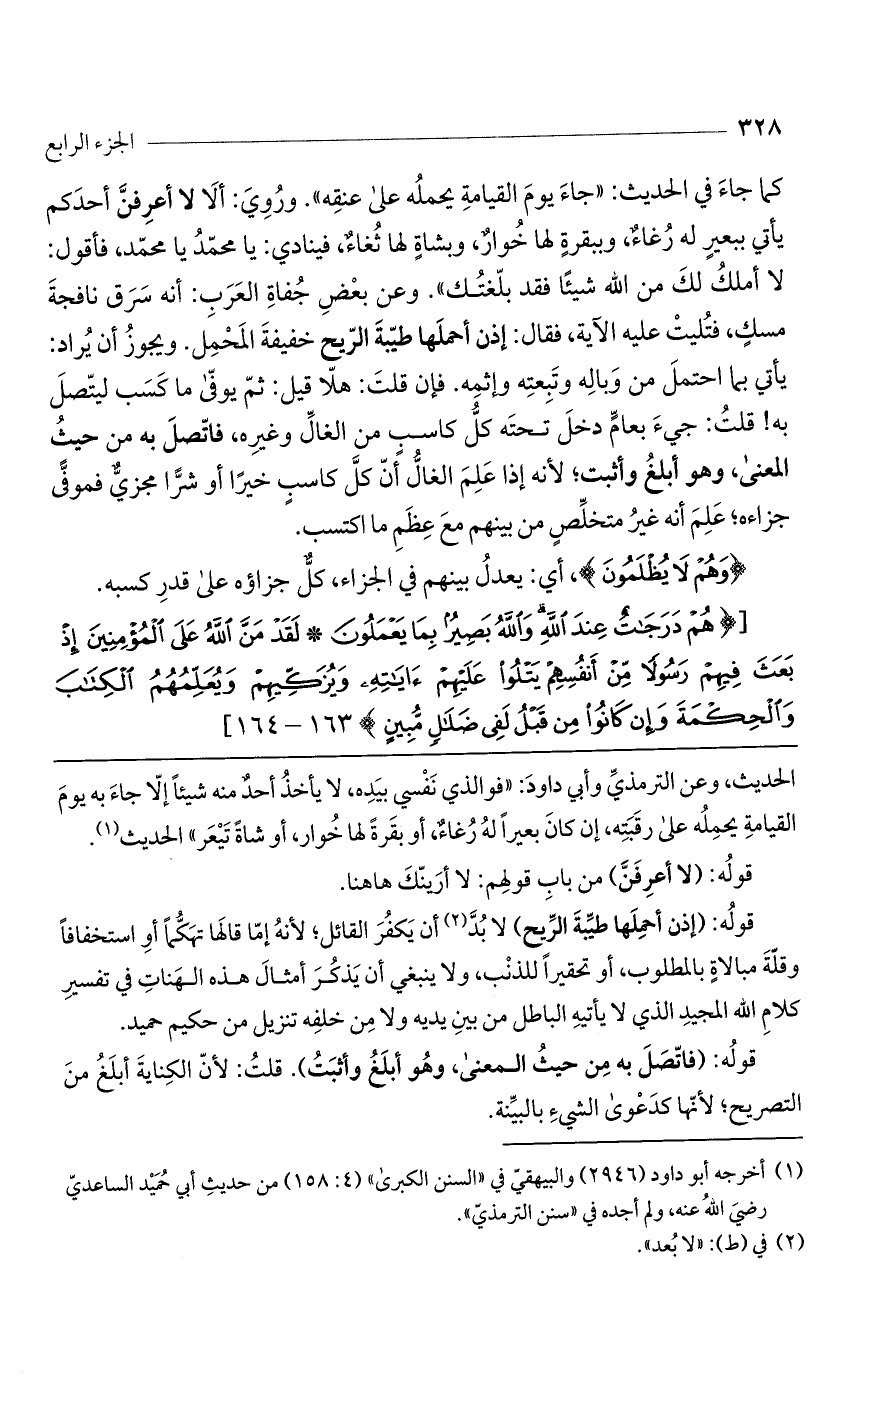 ٣٢٨ الجزء الرابع
كما جاءَ في الحديث: «جاءَ يومَ القيامةِ يحملُه علىٰ عنقِه». ورُوِيَ: ألَا لا أعرِفنَّ أحدَكم
يأتي ببعيرٍ له رُغاءٌ، وببقرةٍ لها خُوارٌ، وبشاةٍ لها ثُغاءٌ، فينادي: يا محمّدُ يا محمّد، فأقول:
لا أملكُ لكَ من الله شيئًا فقد بلّغتُـك». وعن بعْضِ جُفاةِ العَرَبِ: أنه سَرَق نافجةَ
مسكٍ، فتُليتْ عليه الآية، فقال: إذن أحملَها طيّبةَ الرّيح خفيفةَ المَحْمِل. ويجوزُ أن يُراد:
يأتي بما احتملَ من وَبالِه وتَبِعتِه وإثمِه. فإن قلتَ: هلّا قيل: ثمّ يوفّىٰ ما كَسَب ليتّصلَ
به! قلتُ: جيءَ بعامٍّ دخلَ تـحتَه كلُّ كاسـبٍ من الغالِّ وغيرِه، فاتّصلَ به من حيثُ
المعنىٰ، وهو أبلغُ وأثبت؛ لأنه إذا عَلِمَ الغالُّ أنّ كلَّ كاسبٍ خيرًا أو شرًّا مجزيٌّ فموفًّى
جزاءه؛ عَلِمَ أنه غيرُ متخلِّصٍ من بينهم معَ عِظَمِ ما اكتسب.
﴿وَهُمْ لَا يُظْلَمُونَ﴾، أي: يعدلُ بينهم في الجزاء، كلٌّ جزاؤه علىٰ قدرِ كسبه.
[﴿هُمْ دَرَجَٰتٌ عِندَ ٱللَّهِ ۗ وَٱللَّهُ بَصِيرٌۢ بِمَا يَعْمَلُونَ * لَقَدْ مَنَّ ٱللَّهُ عَلَى ٱلْمُؤْمِنِينَ إِذْ
بَعَثَ فِيهِمْ رَسُولًا مِّنْ أَنفُسِهِمْ يَتْلُوا۟ عَلَيْهِمْ ءَايَٰتِهِۦ وَيُزَكِّيهِمْ وَيُعَلِّمُهُمُ ٱلْكِتَٰبَ
وَٱلْحِكْمَةَ وَإِن كَانُوا۟ مِن قَبْلُ لَفِى ضَلَٰلٍ مُّبِينٍ﴾ ١٦٣ – ١٦٤]
الحديث، وعن الترمذيِّ وأبي داودَ: «فوالذي نَفْسي بيَدِه، لا يأخذُ أحدٌ منه شيئاً إلّا جاءَ به يومَ
القيامةِ يحمِلُه علىٰ رقبَتِه، إن كانَ بعيراً لهُ رُغاءٌ، أو بقَرةً لها خُوار، أو شاةً تَيْعَر» الحديث(١).
قولُه: (لا أعرِفَنَّ) من بابِ قولهِم: لا أرَينّكَ هاهنا.
قولُه: (إذن أحمِلَها طيِّبةَ الرِّيح) لا بُدَّ(٢) أن يَكفُرَ القائل؛ لأنهُ إمّا قالَها تهكُّماً أوِ استخفافاً
وقلّةَ مبالاةٍ بالمطلوب، أو تحقيراً للذنْب، ولا ينبغي أن يَذكُرَ أمثـالَ هـذه الـهَناتِ في تفسيرِ
كلامِ الله المجيدِ الذي لا يأتيهِ الباطل من بينِ يديه ولا مِن خلفِه تنزيل من حكيم حميد.
قولُه: (فاتّصَلَ به مِن حيثُ الـمعنىٰ، وهُو أبلَغُ وأثبَتُ). قلتُ: لأنّ الكِنايةَ أبلَغُ منَ
التصريح؛ لأنّها كدَعْوىٰ الشيءِ بالبيِّنة.
(١) أخرجه أبو داود (٢٩٤٦) والبيهقيّ في «السنن الكبرىٰ» (٤: ١٥٨) من حديثِ أبي حُمَيْد الساعديّ
رضيَ اللهُ عنه، ولم أجده في «سنن الترمذيّ».
(٢) في (ط): «لا بُعد».